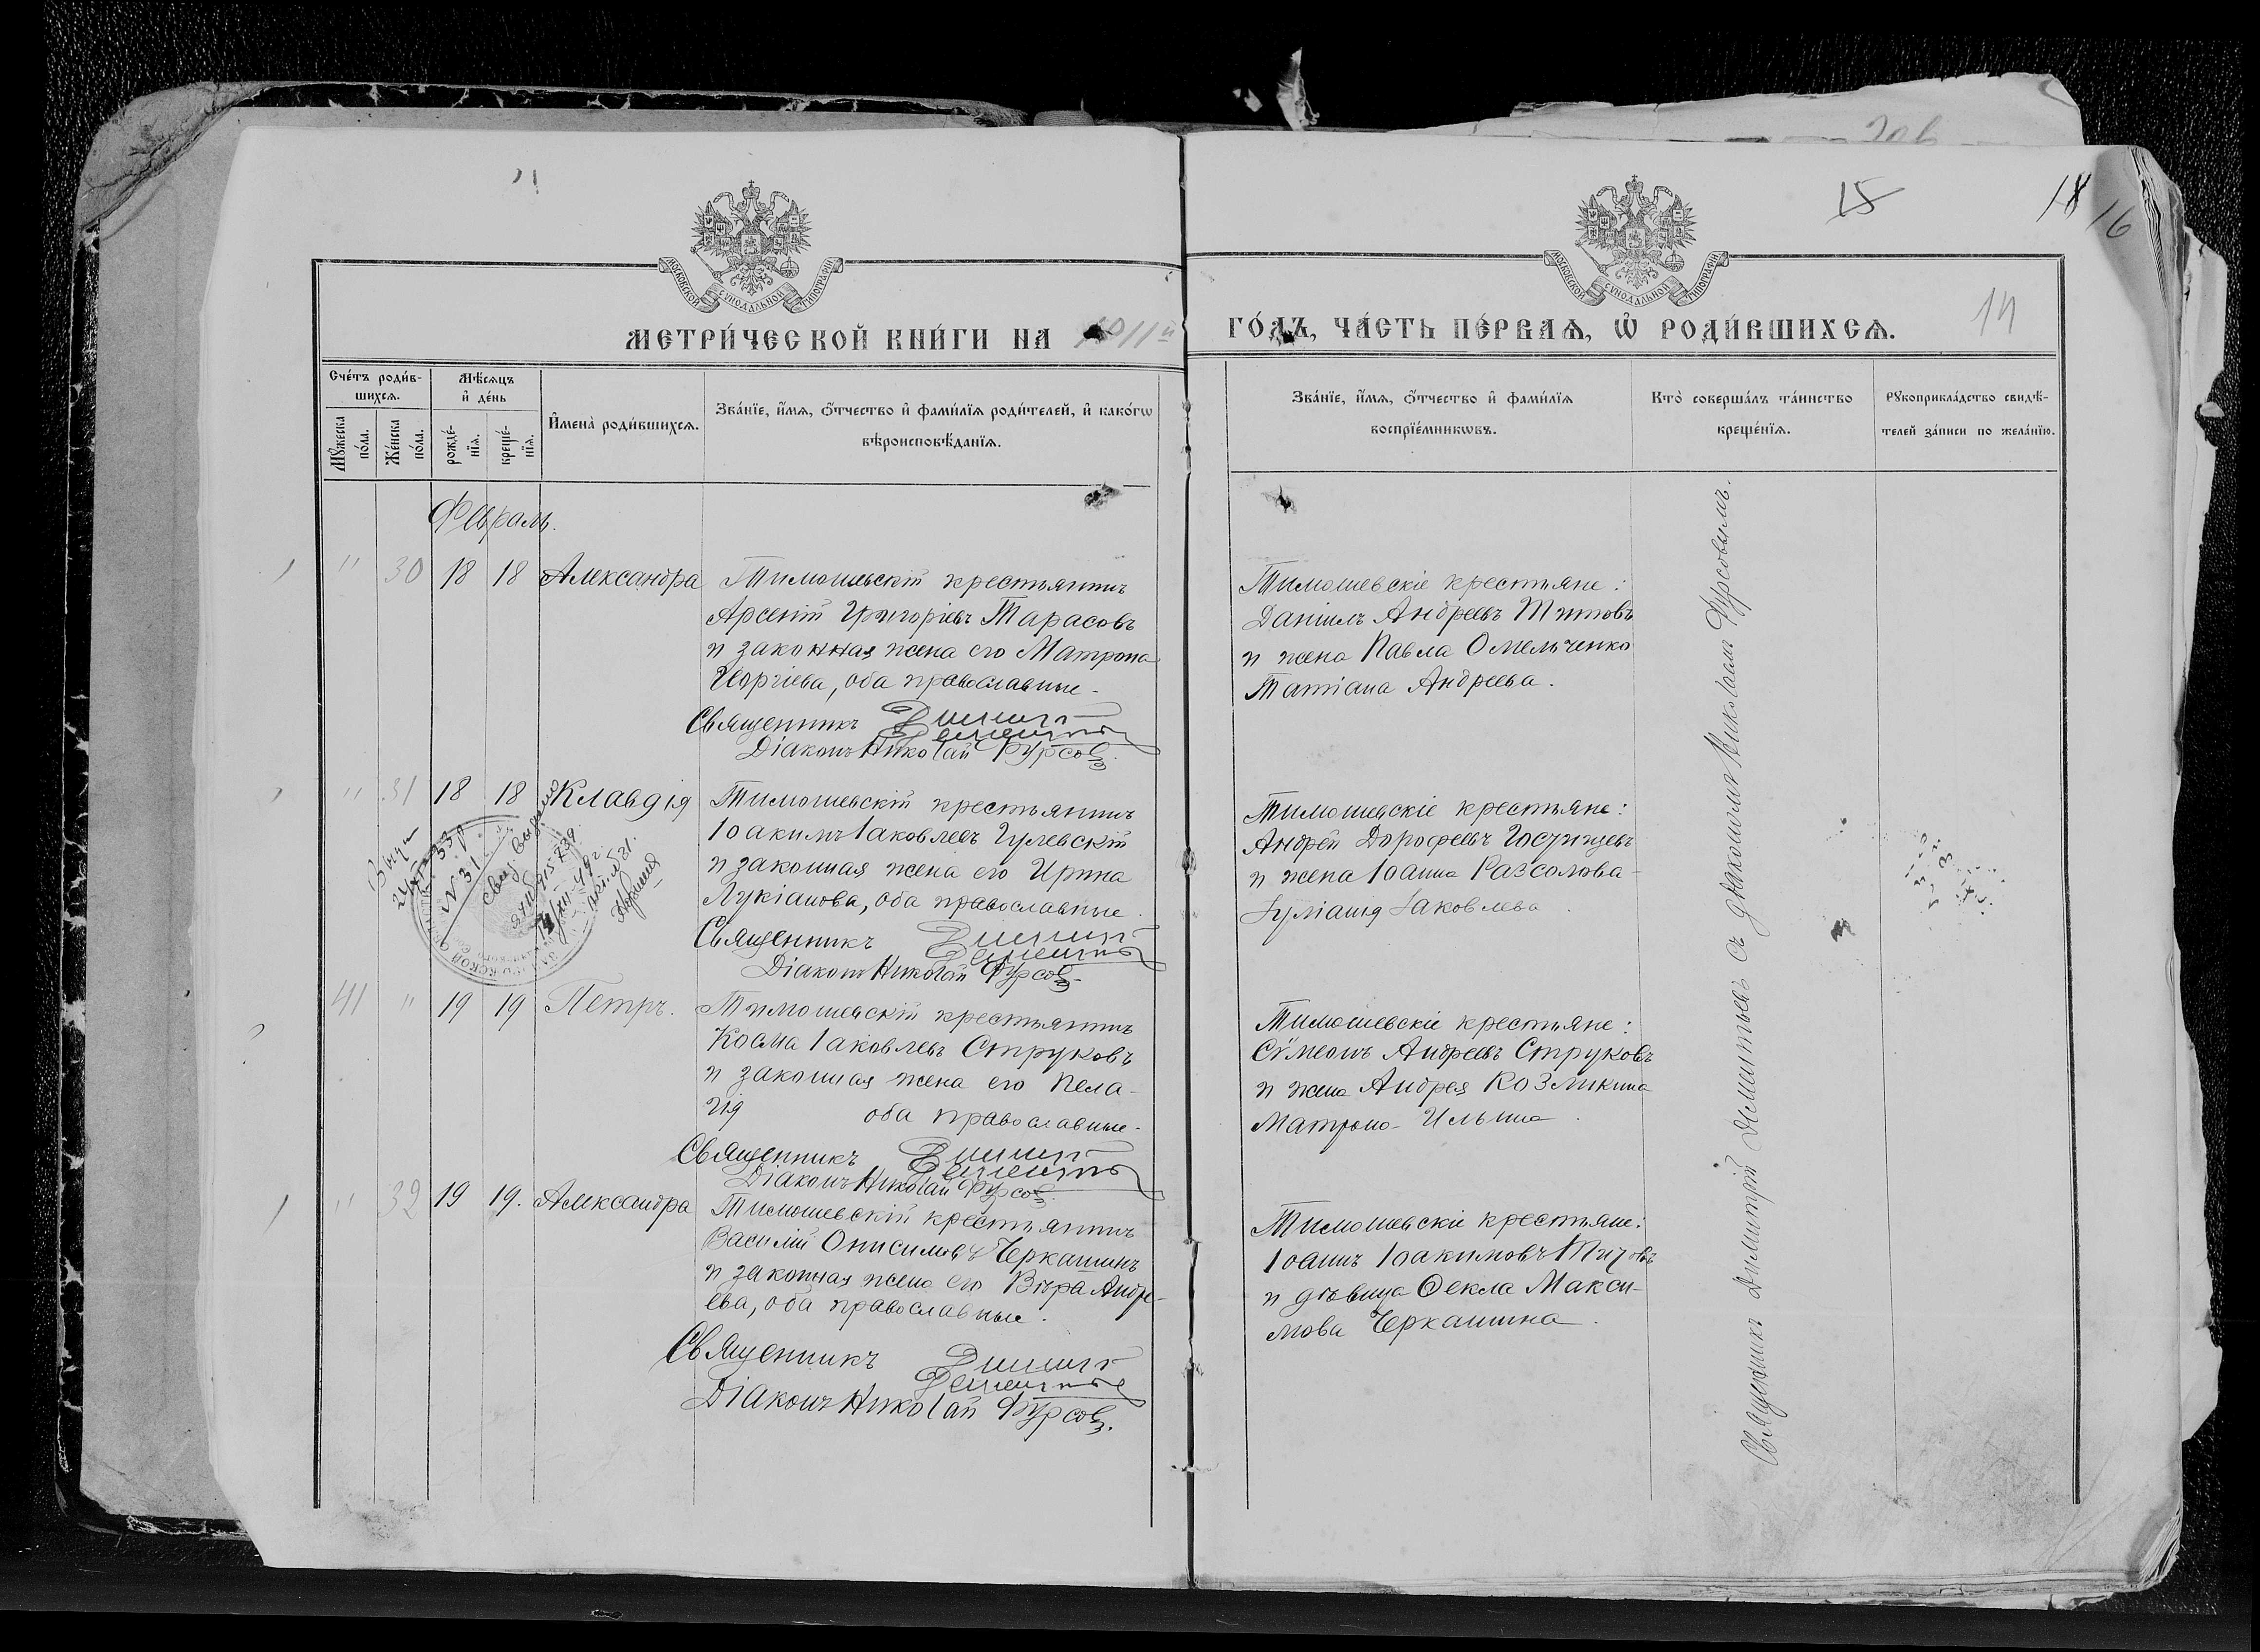 206
15
18
16
МОСКОВСКОЙ СѴНОДАЛЬНОЙ ТИПОГРАФІИ
МОСКОВСКОЙ СѴНОДАЛЬНОЙ ТИПОГРАФІИ
МЕТРИ́ЧЕСКОЙ КНИ́ГИ НА 1911й
ГО́ДЪ, ЧА́СТЬ ПЕ́РВАѦ, Ѡ҆ РОДИ́ВШИХСѦ.
14
Сче́тъ роди́в-
шихсѧ.
Мꙋ́жеска
по́ла.
Же́нска
по́ла.
Мѣ́сѧцъ
и҆ де́нь
рожде́-
нїѧ.
креще́-
нїѧ.
И҆мена̀ роди́вшихсѧ.
Зва́нїе, и҆́мѧ, ѻ҆́тчество и҆ фами́лїѧ роди́телей, и҆ како́гѡ
вѣроисповѣ́данїѧ.
Зва́нїе, и҆́мѧ, ѻ҆́тчество и҆ фами́лїѧ
воспрїе́мникѡвъ.
Кто̀ соверша́лъ та́инство
креще́нїѧ.
Рꙋкоприкла́дство свидѣ́-
телей за́писи по жела́нїю.
Февраль.
" 30 18 18 Александра
Тимошевскій крестьянинъ
Арсеній Григоріевъ Тарасовъ
и законная жена его Матрона
Георгіева, оба православные.
Священникъ Димитрій
Дементьев
Діаконъ Николай Фурсовъ.
Тимошевскіе крестьяне:
Даніилъ Андреевъ Титовъ
и жена Павла Омельченко
Татіана Андреева.
" 31 18 18 Клавдія
Тимошевскій крестьянинъ
Іоакимъ Іаковлевъ Гулевскій
и законная жена его Ирина
Лукіанова, оба православные.
Священникъ Димитрій
Дементьев
Діаконъ Николай Фурсовъ
N 31
Тимошевскіе крестьяне:
Андрей Дорофеевъ
и жена Іоанна Разсолова
Іуліанія Іаковлева.
41 " 19 19 Петръ.
Тимошевскій крестьянинъ
Косма Іаковлевъ Струковъ
и законная жена его Пела-
гія оба православные.
Священникъ Димитрій
Дементьев
Діаконъ Николай Фурсовъ.
Тимошевскіе крестьяне:
Сѵмеонъ Андреевъ Струковъ
и жена Андрея Козликина
Матрона Ильина.
" 32 19 19. Александра
Тимошевскій крестьянинъ
Василій Онисимовъ Черкашинъ
и законная жена его Вѣра Андре-
ева, оба православные.
Священникъ Димитрій
Дементьев
Діаконъ Николай Фурсовъ.
Тимошевскіе крестьяне:
Іоаннъ Іоакимовъ Титовъ
и дѣвица Ѳекла Макси-
мова Черкашина.
Священникъ Димитрій Дементьевъ съ діакономъ Николаемъ Фурсовымъ.